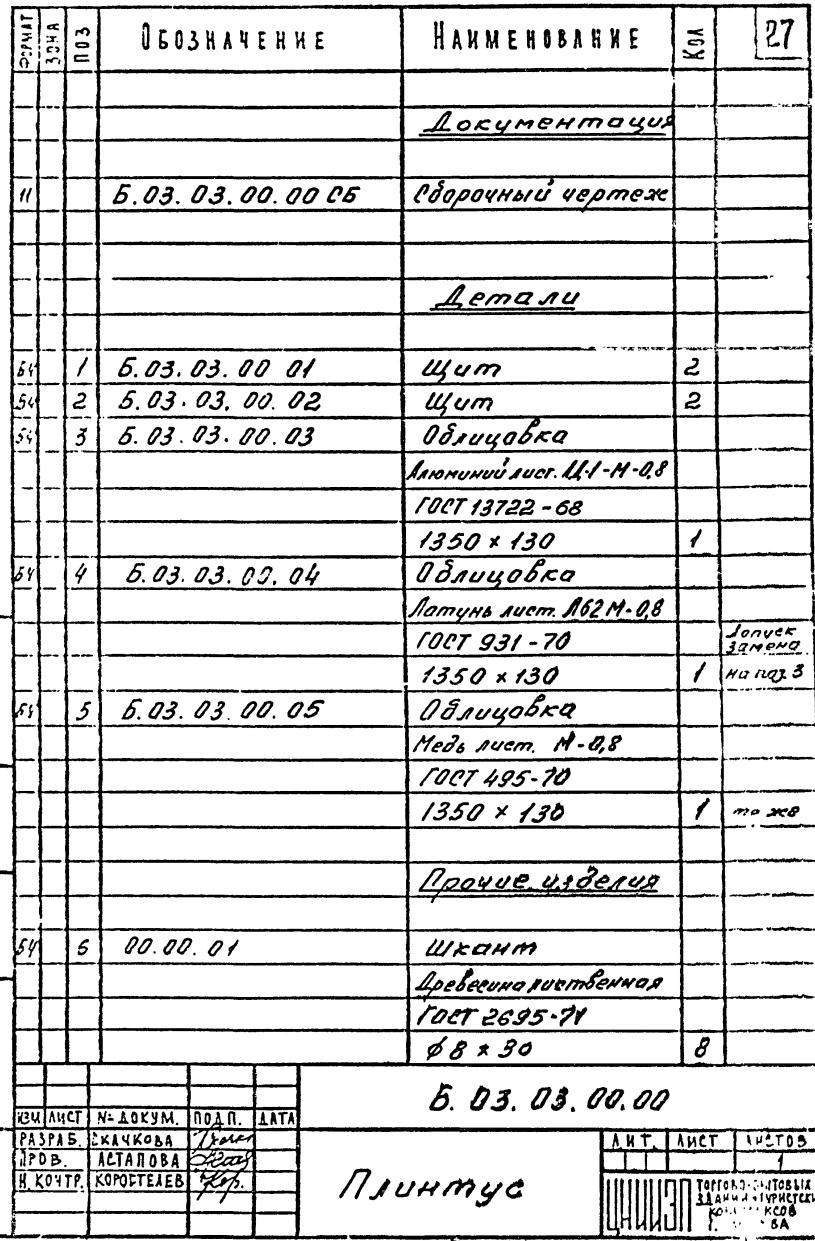 ФОРМАТ ЗОНА ПОЗ ОБОЗНАЧЕНИЕ НАИМЕНОВАНИЕ КОЛ 27
Документация
11 Б.03.03.00.00 СБ Сборочный чертеж
Детали
БЧ 1 Б.03.03.00 01 Щит 2
БЧ 2 Б.03.03.00.02 Щит 2
БЧ 3 Б.03.03.00.03 Облицовка
Алюминий лист. Ц-1-М-0,8
ГОСТ 13722-68
1350 × 130 1
БЧ 4 Б.03.03.00.04 Облицовка
Латунь лист. Л62М-0,8
ГОСТ 931-70 Допуск замена
1350 × 130 1 на поз 3
БЧ 5 Б.03.03.00.05 Облицовка
Медь лист. М-0,8
ГОСТ 495-70
1350 × 130 1 то же
Прочие изделия
БЧ 6 00.00.01 Шкант
Древесина лиственная
ГОСТ 2695-71
ф 8 × 30 8
Б.03.03.00.00
ИЗМ ЛИСТ №ДОКУМ. ПОДП. ДАТА
РАЗРАБ. СКАЧКОВА
ПРОВ. АСТАПОВА
Н.КОНТР. КОРОСТЕЛЕВ
Плинтус
ЛИТ. ЛИСТ ЛИСТОВ
1
ЦНИИЭП ТОРГОВО-БЫТОВЫХ
ЗДАНИЙ И ТУРИСТСКИ